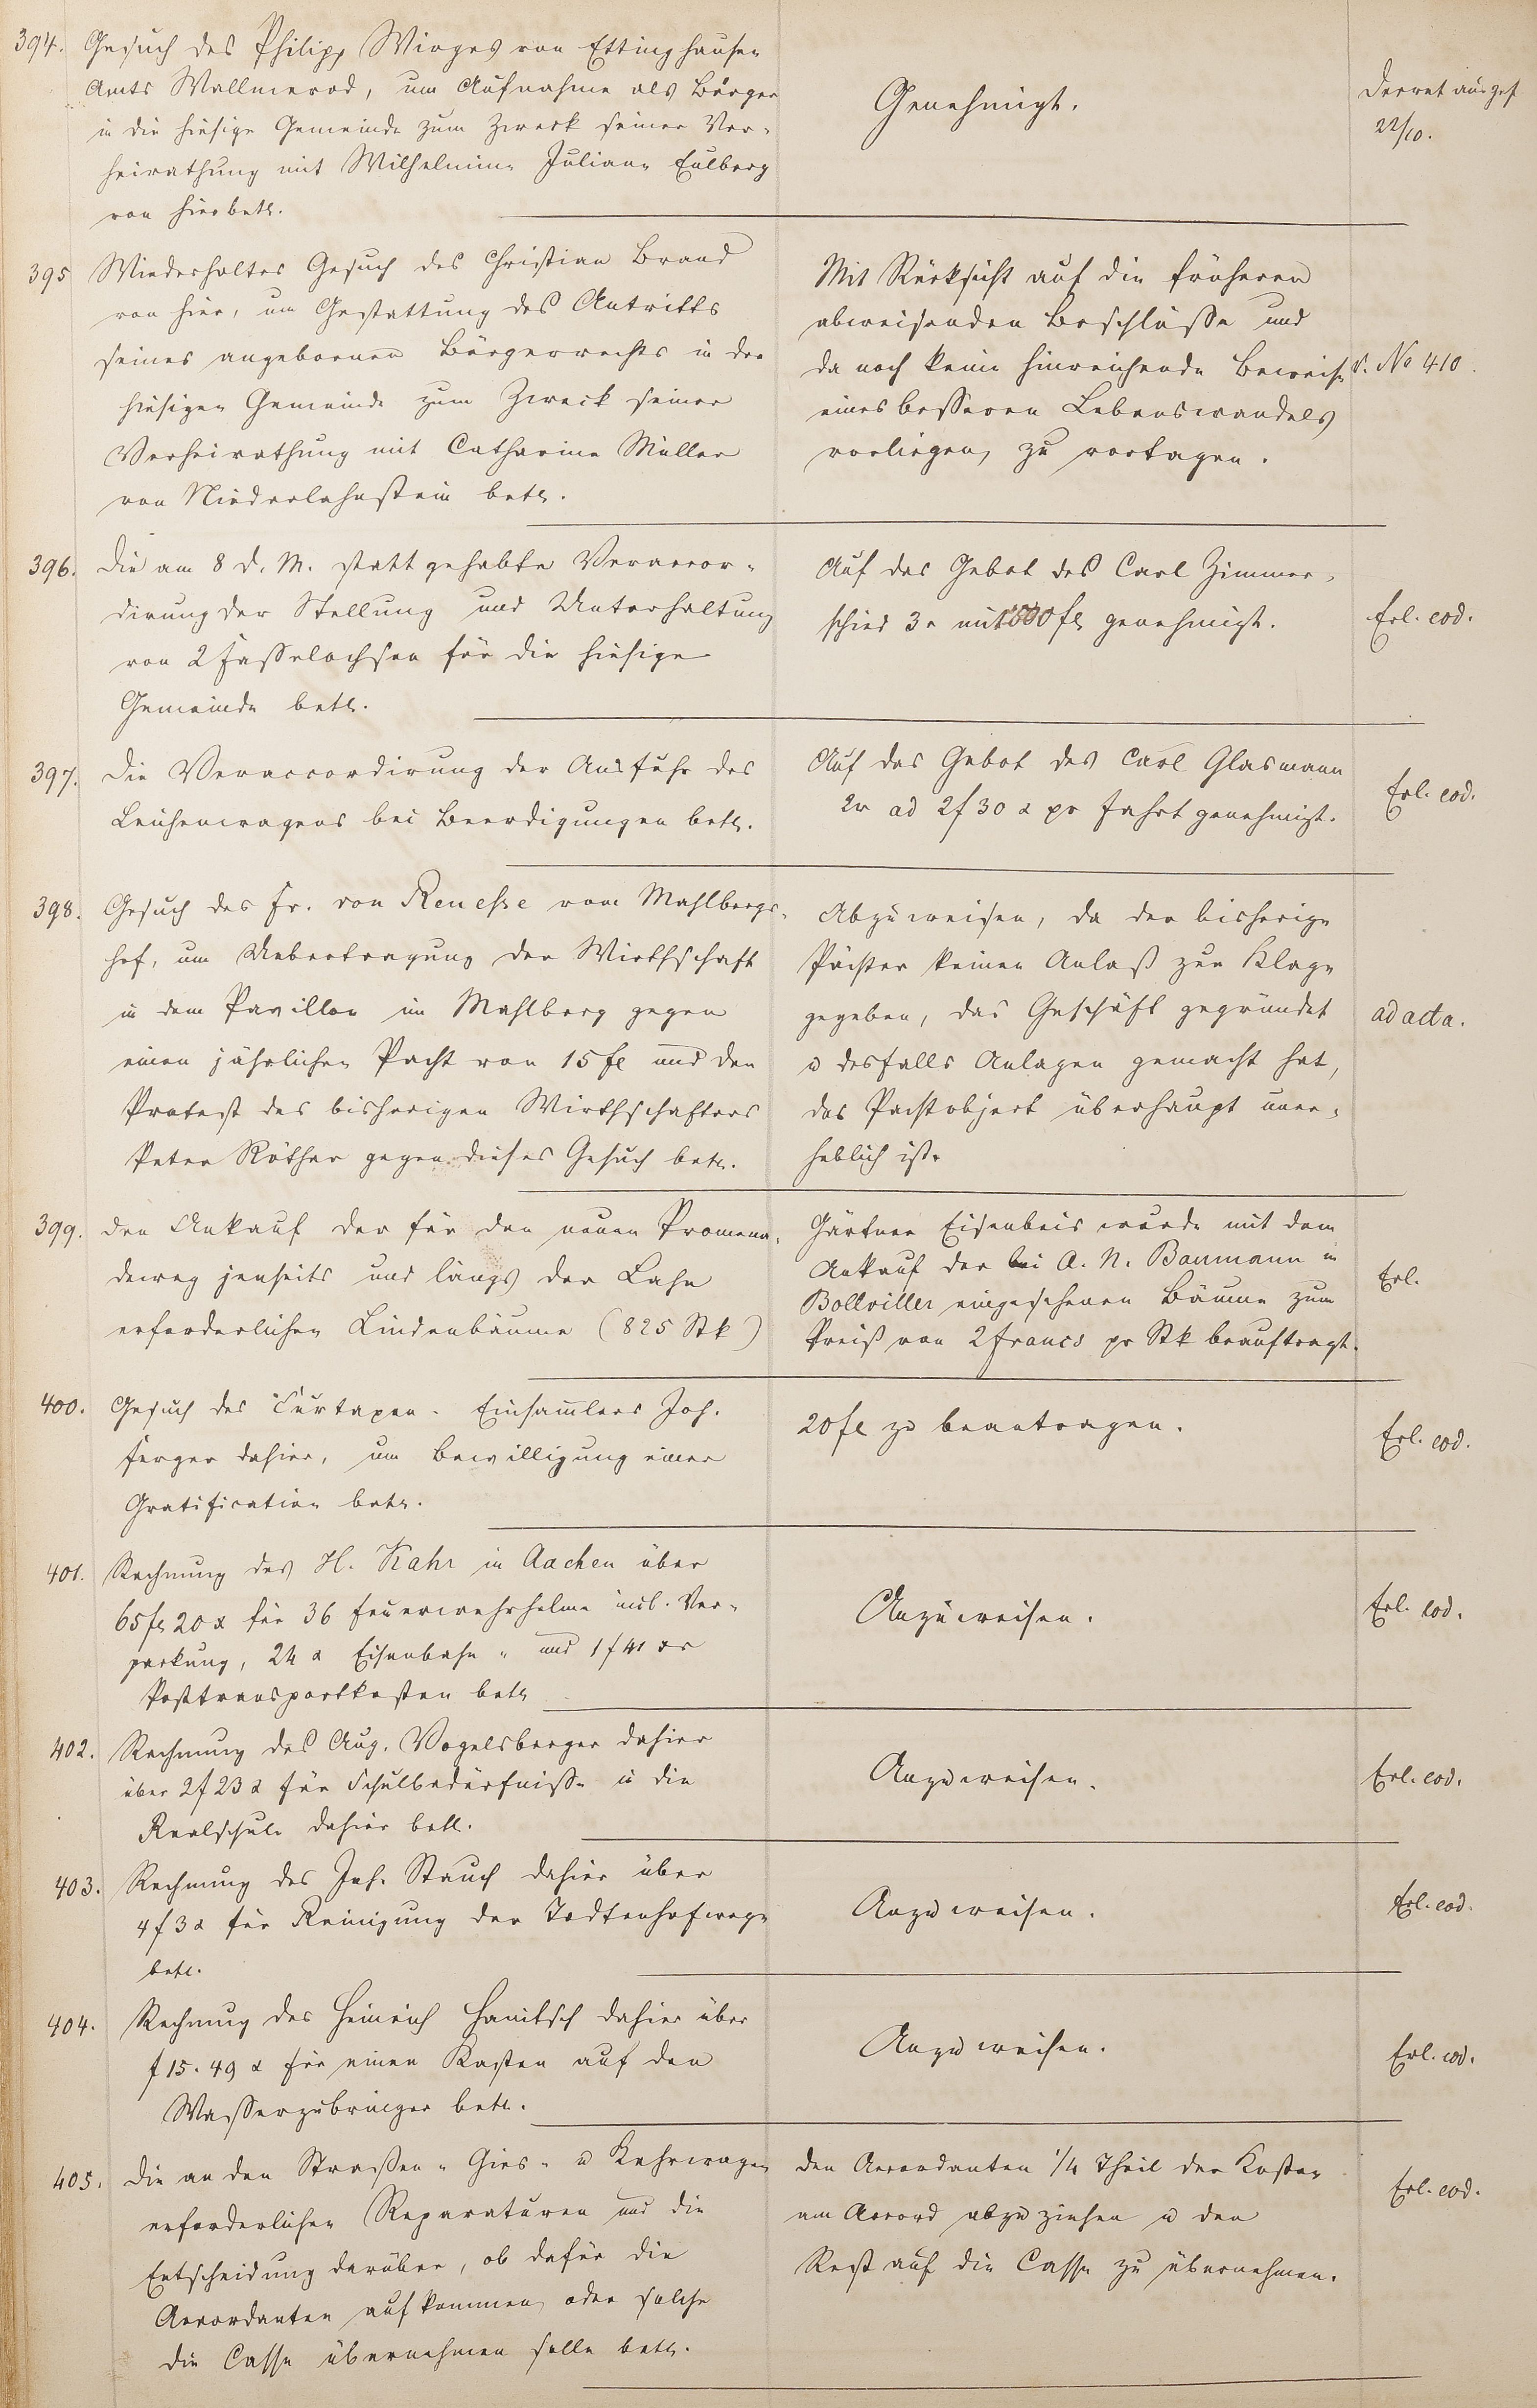 394. Gesuch des Philipp Wirges von Ettinghausen
Amts Wallmerod, um Aufnahme als Bürger
in die hiesige Gemeinde zum Zweck seiner Ver-
heirathung mit Wilhelmine Juliane Eulberg
von hier betr.
Genehmigt.
Decret ausgef.
22/10.
395 Wiederholtes Gesuch des Christian Brand
von hier, um Gestattung des Antritts
seines angebornen Bürgerrechts in der
hiesigen Gemeinde zum Zweck seiner
Verheirathung mit Catharine Müller
von Niederlahnstein betr.
Mit Rücksicht auf die früheren
abweisenden Beschlüsse und
da noch keine hinreichende Beweise
eines besseren Lebenswandels
vorliegen, zu vertagen.
v. No 410.
396. Die am 8 d. M. stattgehabte Veraccor-
dirung der Stellung und Unterhaltung
von 2 Fasselochsen für die hiesige
Gemeinde betr.
Auf das Gebot des Carl Zimmer-
schied 3r mit fl genehmigt.
Erl. eod.
397. Die Veraccordirung der Ausfuhr des
Leichenwagens bei Beerdigungen betr.
Auf das Gebot des Carl Glasmann
2r ad 2f 30 x pr Fahrt genehmigt.
Erl. eod.
398. Gesuch des Fr. von Renesse vom Mahlbergs-
hof, um Uebertragung der Wirthschaft
in dem Pavillon im Mahlberg gegen
einen jährlichen Pacht von 15 fl und den
Protest des bisherigen Wirthschafters
Peter Röther gegen dieses Gesuch betr.
Abzuweisen, da der bisherige
Pächter keinen Anlaß zur Klage
gegeben, das Geschäft gegründet
u desfalls Anlagen gemacht hat,
das Pachtobject überhaupt uner-
heblich ist.
ad acta.
399. Den Ankauf der für den neuen Promena-
deweg jenseits und längs der Lahn
erforderlichen Lindenbäume (825 Stk)
Gärtner Eisenbeis wurde mit dem
Ankauf der bei A. N. Baumann in
Bollviller eingesehenen Bäume zum
Preiß von 2 francs pr Stk beauftragt.
Erl.
400. Gesuch des Curtaxen-Einsammlers Joh.
Ferger dahier, um Bewilligung einer
Gratification betr.
20 fl zu beantragen.
Erl. eod.
401. Rechnung des H. Kahr in Aachen über
65 fl 20 x für 36 Feuerwehrhelme incl. Ver-
packung, 24 x Eisenbahn- und 1 f 41 xr
Posttransportkosten betr
Anzuweisen.
Erl. eod.
402. Rechnung des Aug. Vogelsberger dahier
über 2f 23 x für Schulbedürfnisse in die
Realschule dahier betr.
Anzuweisen.
Erl. eod.
403. Rechnung des Joh. Stauch dahier über
4 f 3 x für Reinigung der Todtenhofwege
betr.
Anzuweisen.
Erl. eod.
404. Rechnung des Heinrich Hanitsch dahier über
f 15. 49 x für einen Kasten auf den
Wasserzubringer betr.
Anzuweisen.
Erl. eod.
405. Die an den Straßen-Gies- u Kehrwagen
erforderlichen Reparaturen und die
Entscheidung darüber, ob dafür die
Accordanten aufkommen oder solche
die Casse übernehmen solle betr.
Den Accordanten 1/4 Theil der Kosten
am Accord abzuziehen u den
Rest auf die Casse zu übernehmen.
Erl. eod.